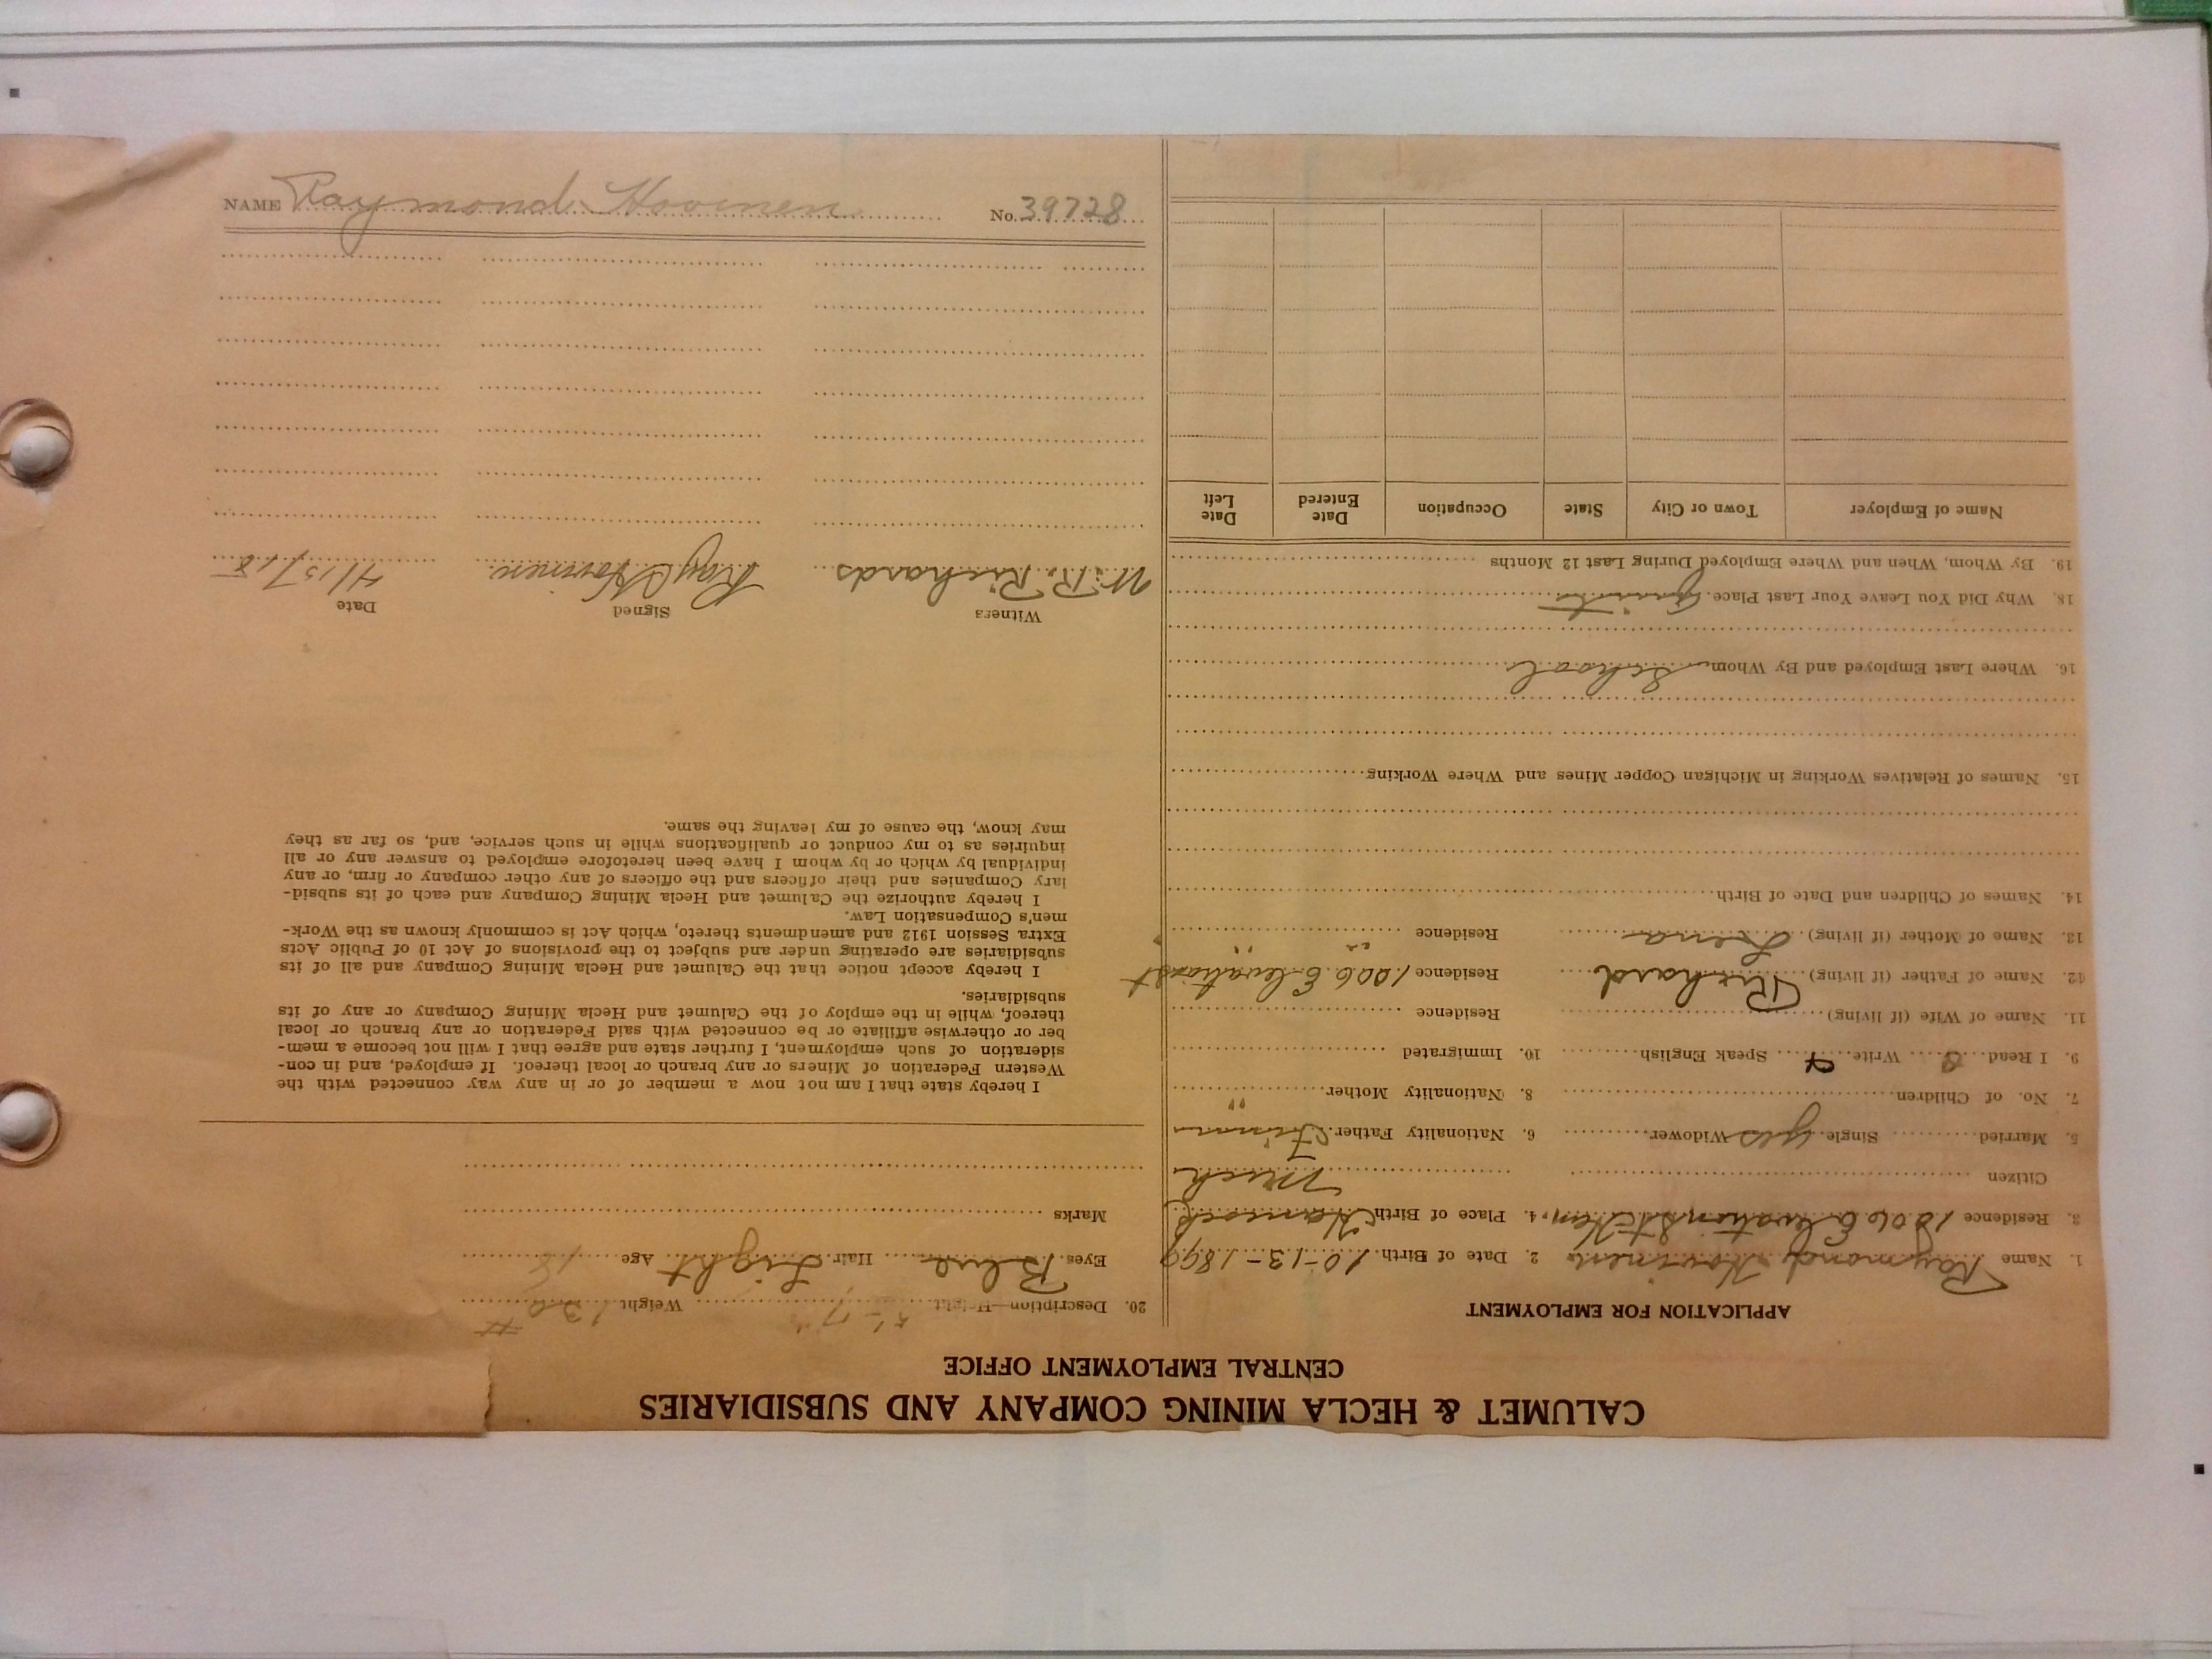 NAME Raymond Hovinen No. 39728
CALUMET & HECLA MINING COMPANY AND SUBSIDIARIES
CENTRAL EMPLOYMENT OFFICE
APPLICATION FOR EMPLOYMENT
1. Name Raymond Hovinen 2. Date of Birth 10-13-1899
3. Residence 1006 Elevation St Han. 4. Place of Birth Hancock
Citizen Mich
5. Married Single yes Widower 6. Nationality Father Finn
7. No. of Children 8. Nationality Mother "
9. I Read Write Speak English 10. Immigrated
11. Name of Wife (if living) Residence
12. Name of Father (if living) Richard Residence 1006 Elevation st
13. Name of Mother (if living) Lena Residence " "
14. Names of Children and Date of Birth
15. Names of Relatives Working in Michigan Copper Mines and Where Working
16. Where Last Employed and By Whom School
18. Why Did You Leave Your Last Place Quit
19. By Whom, When and Where Employed During Last 12 Months
Name of Employer Town or City State Occupation Date Entered Date Left
20. Description—Height 5'-7" Weight 130 #
Eyes Blue Hair Light Age 18
Marks
I hereby state that I am not now a member of or in any way connected with the
Western Federation of Miners or any branch or local thereof. If employed, and in con-
sideration of such employment, I further state and agree that I will not become a mem-
ber or otherwise affiliate or be connected with said Federation or any branch or local
thereof, while in the employ of the Calumet and Hecla Mining Company or any of its
subsidiaries.
I hereby accept notice that the Calumet and Hecla Mining Company and all of its
subsidiaries are operating under and subject to the provisions of Act 10 of Public Acts
Extra Session 1912 and amendments thereto, which Act is commonly known as the Work-
men's Compensation Law.
I hereby authorize the Calumet and Hecla Mining Company and each of its subsid-
iary Companies and their officers and the officers of any other company or firm, or any
individual by which or by whom I have been heretofore employed to answer any or all
inquiries as to my conduct or qualifications while in such service, and, so far as they
may know, the cause of my leaving the same.
Witness Signed Date
W. R. Richards Ray Hovinen 4/15/18